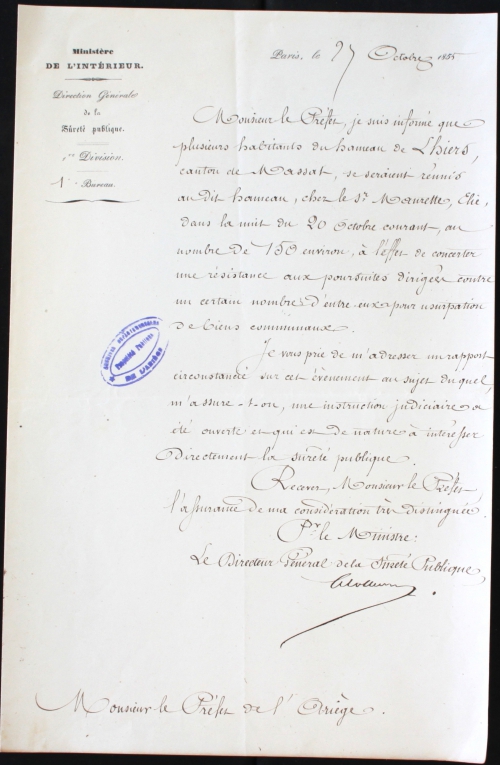 Ministère
DE L'INTÉRIEUR.
Direction Générale
de la
Sûreté publique.
1re Division.
1er Bureau.
Paris, le 27 Octobre 1855
Monsieur le Préfet, je suis informé que
plusieurs habitants du hameau de Lhiers,
canton de Massat, se seraient réunis
au dit hameau, chez le Sr. Maurette, Elie,
dans la nuit du 20 Octobre courant, au
nombre de 150 environ, à l'effet de concerter
une résistance aux poursuites dirigées contre
un certain nombre d'entre eux pour usurpation
de biens communaux.
Je vous prie de m'adresser un rapport
circonstancié sur cet évènement au sujet duquel,
m'assure-t-on, une instruction judiciaire a
été ouverte et qui est de nature à intéresser
directement la sûreté publique.
Recevez, Monsieur le Préfet,
l'assurance de ma considération très distinguée.
Pr. le Ministre:
Le Directeur Général de la Sûreté Publique,
ARCHIVES DÉPARTEMENTALES
PROPRIÉTÉ PUBLIQUE
DE L'ARIÈGE
Monsieur le Préfet de l'Ariège.